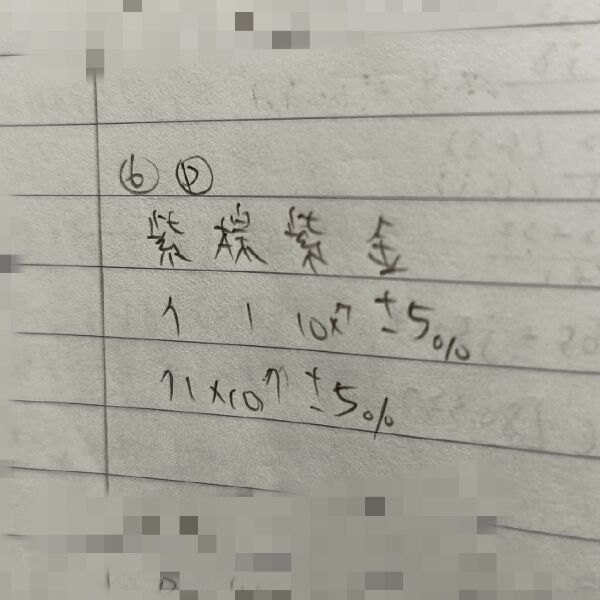 ⑥ Ⓓ
紫 橙 紫 金
7 1 10×7 ±5%
71×10⁷ ±5%